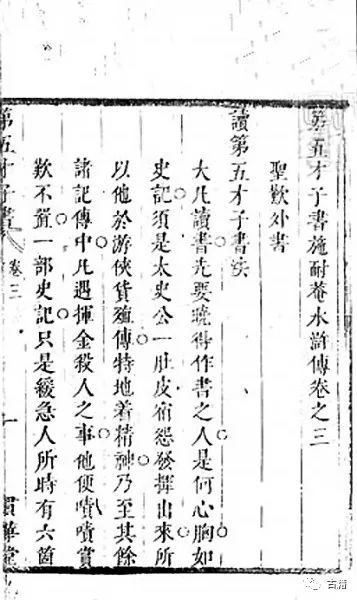 第五才子書施耐菴水滸傳卷之三
聖歎外書
讀第五才子書法
大凡讀書先要曉得作書之人是何心胸如
史記須是太史公一肚皮宿怨發揮出來所
以他於游俠貨殖傳特地着精神乃至其餘
諸記傳中凡遇揮金殺人之事他便嘖嘖賞
歎不置一部史記只是緩急人所時有六箇
第五才子書
卷三
一
貫華堂
古籍